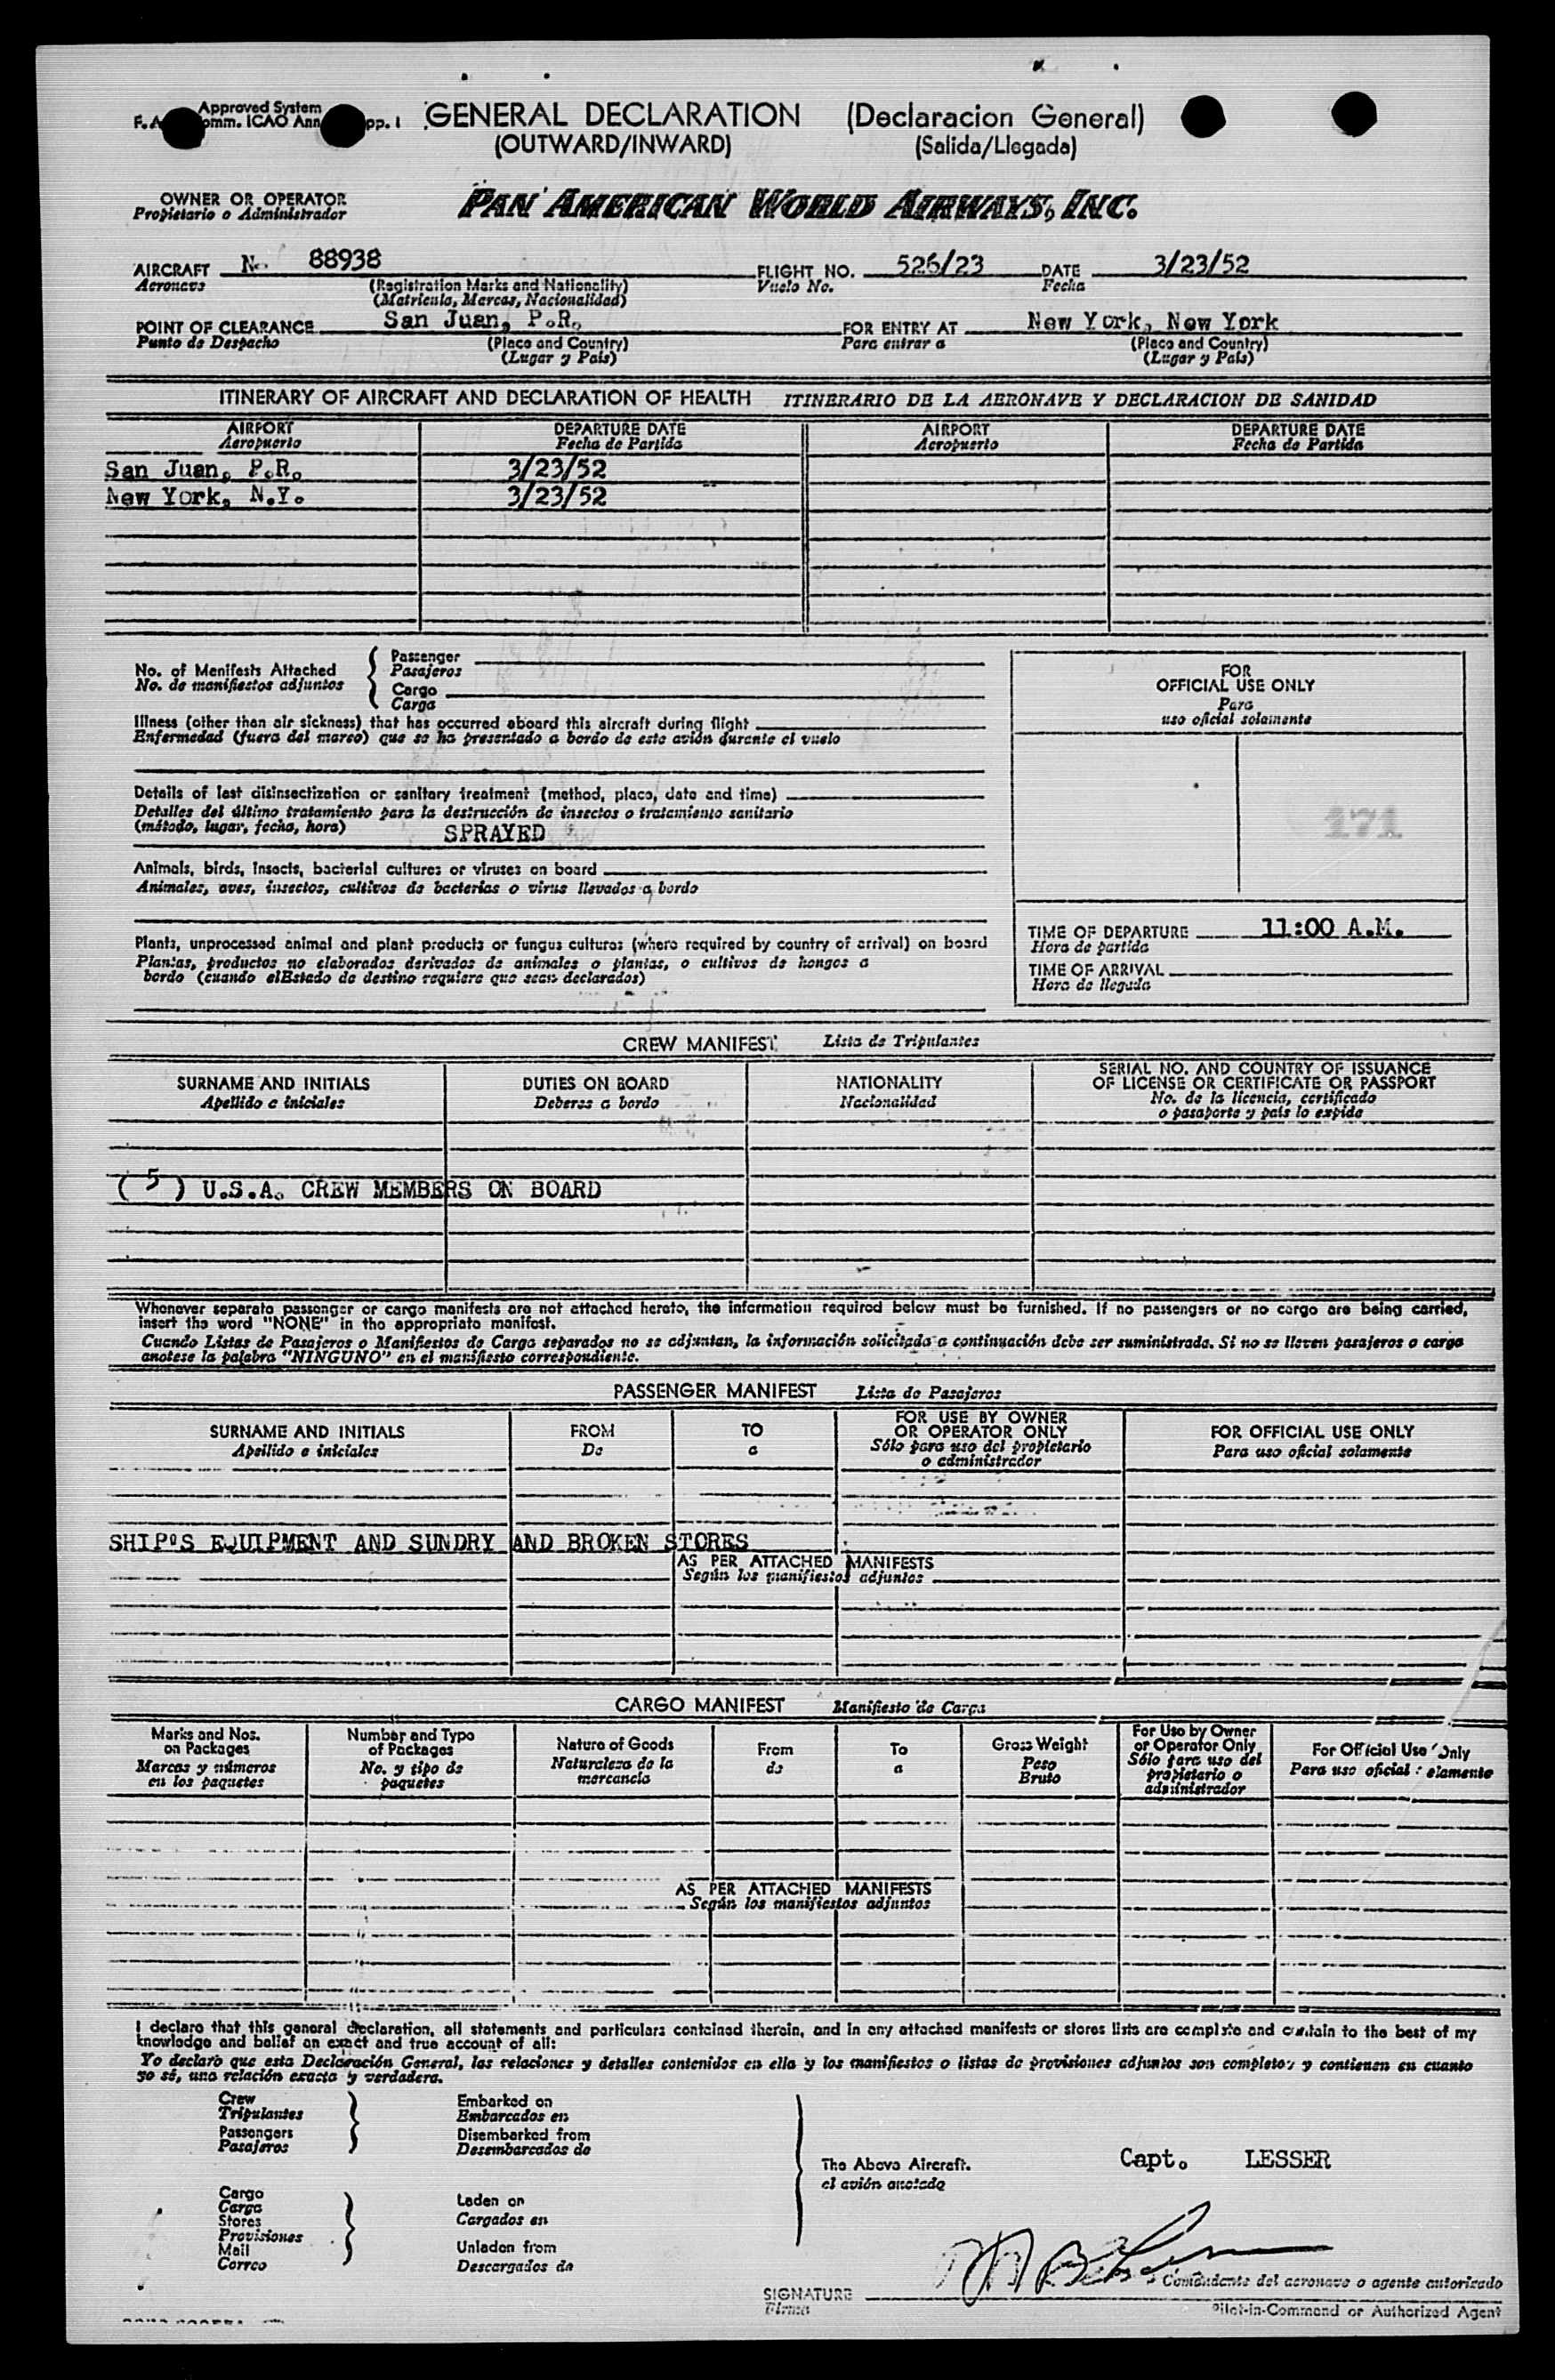 Approved System
GENERAL DECLARATION (Declaracion General)
(OUTWARD/INWARD) (Salida/Llegada)
OWNER OR OPERATOR
Propietario o Administrador
PAN AMERICAN WORLD AIRWAYS, INC.
AIRCRAFT N. 88938 FLIGHT NO. 526/23 DATE 3/23/52
Aeronave (Registration Marks and Nationality) Vuelo No. Fecha
(Matricula, Marcas, Nacionalidad)
POINT OF CLEARANCE San Juan, P.R. FOR ENTRY AT New York, New York
Punto de Despacho (Place and Country) Para entrar a (Place and Country)
(Lugar y País) (Lugar y País)
ITINERARY OF AIRCRAFT AND DECLARATION OF HEALTH ITINERARIO DE LA AERONAVE Y DECLARACION DE SANIDAD
AIRPORT DEPARTURE DATE AIRPORT DEPARTURE DATE
Aeropuerto Fecha de Partida Aeropuerto Fecha de Partida
San Juan, P.R. 3/23/52
New York, N.Y. 3/23/52
No. of Manifests Attached
No. de manifiestos adjuntos
Passenger
Pasajeros
Cargo
Carga
Illness (other than air sickness) that has occurred aboard this aircraft during flight
Enfermedad (fuera del mareo) que se ha presentado a bordo de este avión durante el vuelo
Details of last disinsectization or sanitary treatment (method, place, date and time)
Detalles del último tratamiento para la destrucción de insectos o tratamiento sanitario
(método, lugar, fecha, hora) SPRAYED
Animals, birds, insects, bacterial cultures or viruses on board
Animales, aves, insectos, cultivos de bacterias o virus llevados a bordo
Plants, unprocessed animal and plant products or fungus cultures (where required by country of arrival) on board
Plantas, productos no elaborados derivados de animales o plantas, o cultivos de hongos a
bordo (cuando elEstado de destino requiere que sean declarados)
FOR
OFFICIAL USE ONLY
Para
uso oficial solamente
171
TIME OF DEPARTURE 11:00 A.M.
Hora de partida
TIME OF ARRIVAL
Hora de llegada
CREW MANIFEST Lista de Tripulantes
SURNAME AND INITIALS DUTIES ON BOARD NATIONALITY SERIAL NO. AND COUNTRY OF ISSUANCE
OF LICENSE OR CERTIFICATE OR PASSPORT
Apellido e iniciales Deberes a bordo Nacionalidad No. de la licencia, certificado
o pasaporte y país lo expide
( 5 ) U.S.A. CREW MEMBERS ON BOARD
Whenever separate passenger or cargo manifests are not attached hereto, the information required below must be furnished. If no passengers or no cargo are being carried,
insert the word "NONE" in the appropriate manifest.
Cuando Listas de Pasajeros o Manifiestos de Carga separados no se adjuntan, la información solicitada a continuación debe ser suministrada. Si no se lleven pasajeros o carga
anotese la palabra "NINGUNO" en el manifiesto correspondiente.
PASSENGER MANIFEST Lista de Pasajeros
SURNAME AND INITIALS FROM TO FOR USE BY OWNER
OR OPERATOR ONLY FOR OFFICIAL USE ONLY
Apellido e iniciales De a Sólo para uso del propietario
o administrador Para uso oficial solamente
SHIP'S EQUIPMENT AND SUNDRY AND BROKEN STORES
AS PER ATTACHED MANIFESTS
Según los manifiestos adjuntos
CARGO MANIFEST Manifiesto de Carga
Marks and Nos.
on Packages
Marcas y números
en los paquetes
Number and Type
of Packages
No. y tipo de
paquetes
Nature of Goods
Naturaleza de la
mercancía
From
de
To
a
Gross Weight
Peso
Bruto
For Use by Owner
or Operator Only
Sólo para uso del
propietario o
administrador
For Official Use Only
Para uso oficial solamente
AS PER ATTACHED MANIFESTS
Según los manifiestos adjuntos
I declare that this general declaration, all statements and particulars contained therein, and in any attached manifests or stores lists are complete and contain to the best of my
knowledge and belief an exact and true account of all:
Yo declaro que esta Declaración General, las relaciones y detalles contenidos en ella y los manifiestos o listas de provisiones adjuntos son completos y contienen en cuanto
yo sé, una relación exacta y verdadera.
Crew
Tripulantes
Passengers
Pasajeros
Embarked on
Embarcados en
Disembarked from
Desembarcados de
Cargo
Carga
Stores
Provisiones
Mail
Correo
Laden on
Cargados en
Unladen from
Descargados de
The Above Aircraft.
el avión anotado
Capt. LESSER
SIGNATURE
Firma
Comandante del aeronave o agente autorizado
Pilot-in-Command or Authorized Agent